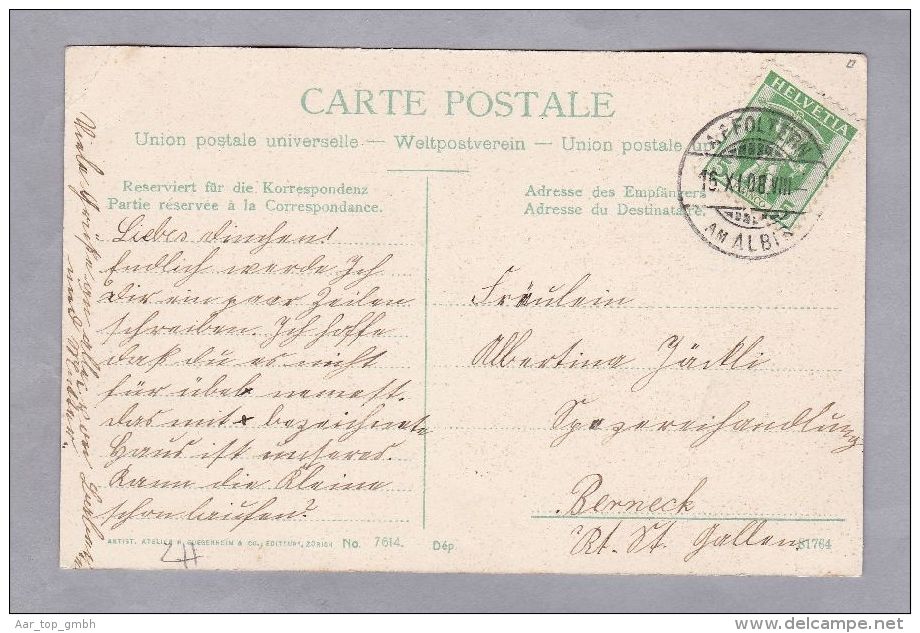 CARTE POSTALE
Union postale universelle — Weltpostverein — Union postale un
Reserviert für die Korrespondenz
Partie réservée à la Correspondance.
Adresse des Empfängers
Adresse du Destinataire.
HELVETIA
AFFOLTERN
15.XI.08.VIII
AM ALBIS
Liebes Dinchen!
Endlich werde Ich
Dir ein paar Zeilen
schreiben. Ich hoffe
daß du es nicht
für übel nemest.
Das mit x bezeichnete
Haus ist unseres.
Kann die Kleine
schon laufen?
Viele Grüße an alle von
und Mutter.
Fräulein
Albertina Jäckli
Spezereihandlung
Berneck
Kt. St. Gallen
ARTIST. ATELIER H. GUGGENHEIM & CO., EDITEURS, ZÜRICH No. 7614. Dép.
51764
Aar_top_gmbh
delcampe.net